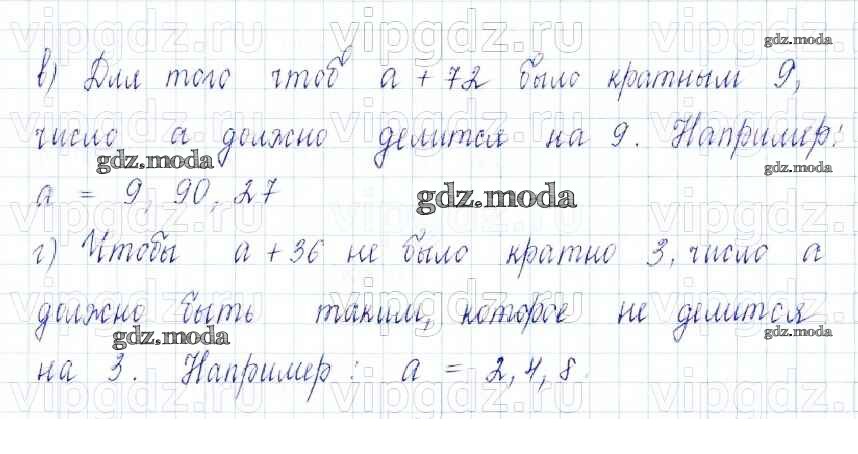 в) Для того чтоб a + 72 было кратным 9,
число a должно делится на 9. Например:
a = 9, 90, 27
г) Чтобы a + 36 не было кратно 3, число a
должно быть таким, которое не делится
на 3. Например: a = 2, 4, 8.
vipgdz.ru
gdz.moda